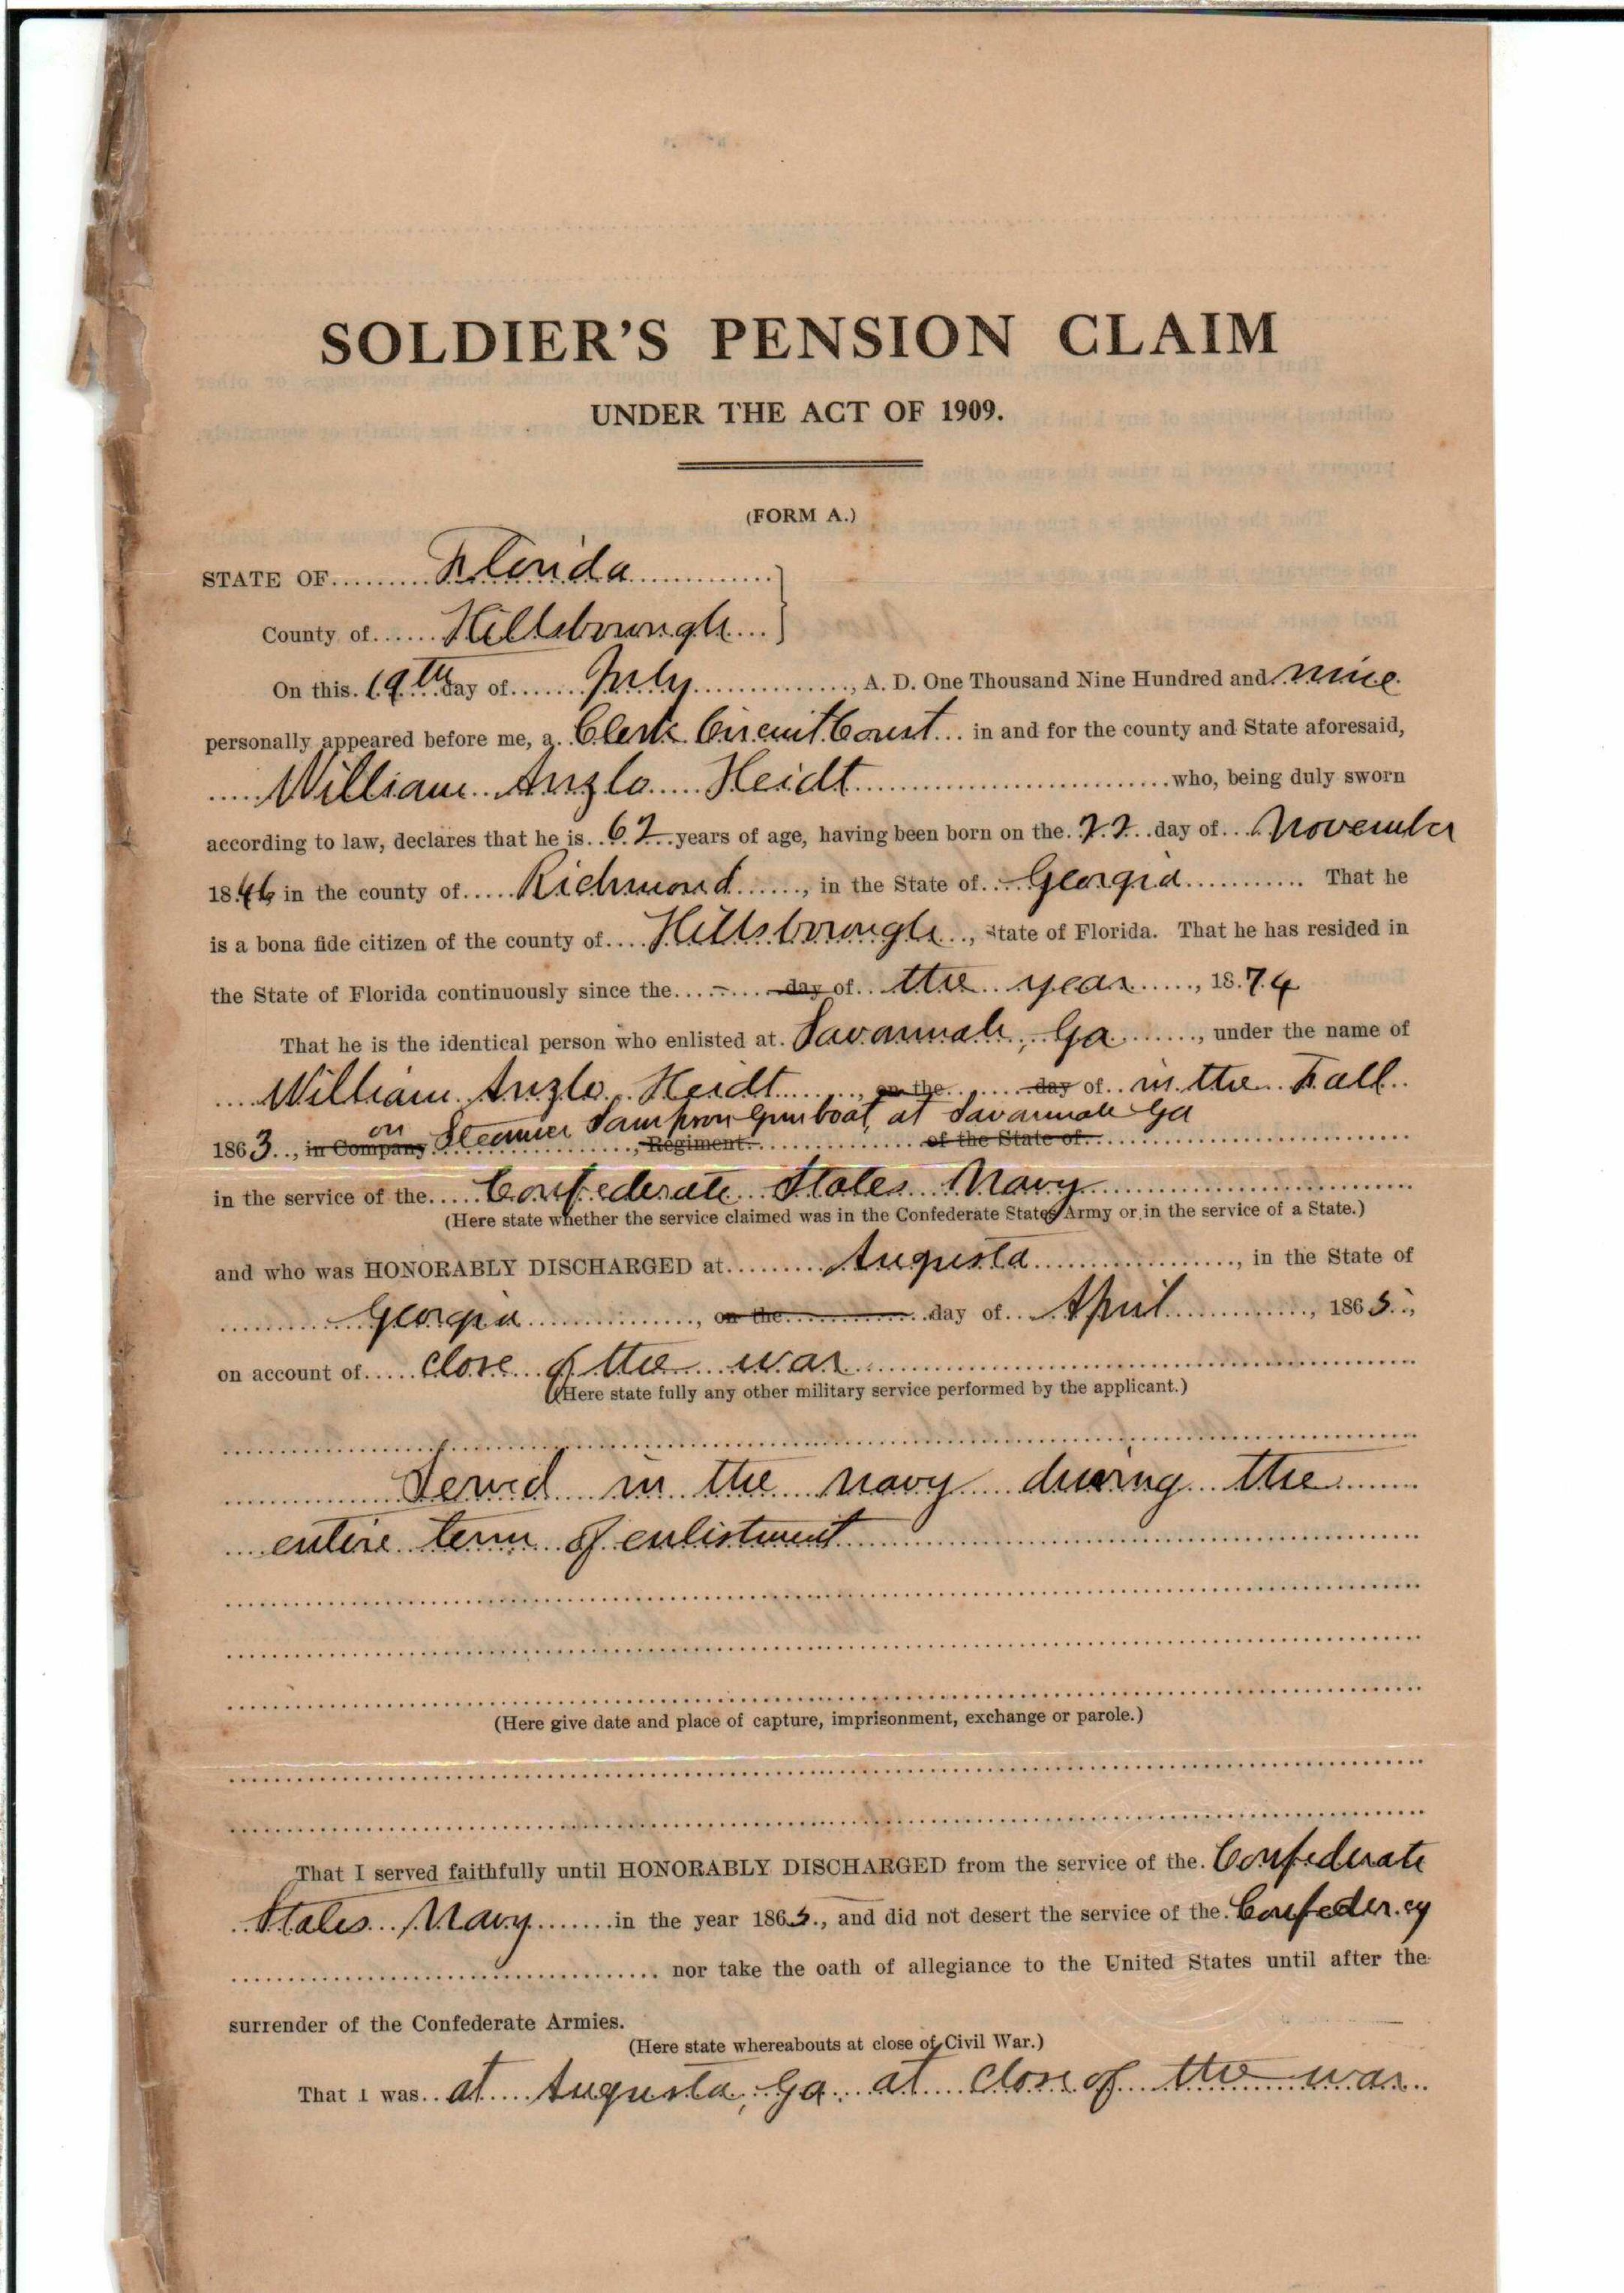 SOLDIER'S PENSION CLAIM
UNDER THE ACT OF 1909.
(FORM A.)
STATE OF Florida
County of Hillsborough
On this 19th day of July, A. D. One Thousand Nine Hundred and nine
personally appeared before me, a Clerk Circuit Court in and for the county and State aforesaid,
William Anzlo Heidt who, being duly sworn
according to law, declares that he is 62 years of age, having been born on the 22 day of November
1846 in the county of Richmond, in the State of Georgia That he
is a bona fide citizen of the county of Hillsborough, State of Florida. That he has resided in
the State of Florida continuously since the - day of the year, 1874
That he is the identical person who enlisted at Savannah, Ga, under the name of
William Anzlo Heidt, on the day of in the Fall
on Steamer Sampson Gunboat, at Savannah Ga
1863, in Company, Regiment of the State of
in the service of the Confederate States Navy
(Here state whether the service claimed was in the Confederate States Army or in the service of a State.)
and who was HONORABLY DISCHARGED at Augusta, in the State of
Georgia, on the day of April, 1865,
on account of close of the war
(Here state fully any other military service performed by the applicant.)
Served in the navy during the
entire term of enlistment
(Here give date and place of capture, imprisonment, exchange or parole.)
That I served faithfully until HONORABLY DISCHARGED from the service of the Confederate
States Navy in the year 1865, and did not desert the service of the Confedercy
nor take the oath of allegiance to the United States until after the
surrender of the Confederate Armies.
(Here state whereabouts at close of Civil War.)
That I was at Augusta, Ga. at close of the war